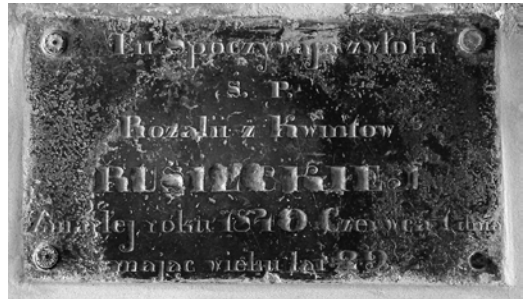 Tu Spoczywają zwłoki
Ś. P.
Rozalii z Kwintow
RUSIECKIEJ
Zmarłej roku 18 Czerwca dnia
mając wieku lat